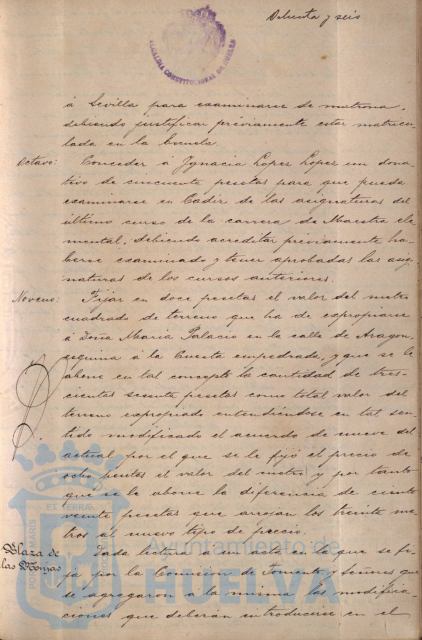 Ochenta y seis
ALCALDIA CONSTITUCIONAL DE HUELVA
á Sevilla para examinarse de matrona,
debiendo justificar préviamente estar matricu-
lada en la Escuela.
Octavo: Conceder á Ygnacia Lopez Lopez un dona-
tivo de cincuenta pesetas para que pueda
examinarse en Cadiz de las asignaturas del
último curso de la carrera de Maestra ele-
mental, debiendo acreditar préviamente ha-
berse examinado y tener aprobadas las asig-
naturas de los cursos anteriores.
Noveno: Fijar en doce pesetas el valor del metro
cuadrado de terreno que ha de expropiarse
á Doña Maria Palacio en la calle de Aragon,
esquina á la Cuesta empedrada, y que se le
abone en tal concepto la cantidad de tres-
cientas sesenta pesetas como total valor del
terreno expropiado entendiéndose en tal sen-
tido modificado el acuerdo de nueve del
actual por el que se le fijó el precio de
ocho pesetas el valor del metro y por tanto
que se le abone la diferencia de ciento
veinte pesetas que arrojan los treinta me-
tros al nuevo tipo de precio.
Plaza de las Monjas Dada lectura á un acta en la que se fi-
ja por la Comision de Fomento y Señores que
se agregaron á la misma las modifica-
ciones que deberán introducirse en el
PORTUS MARIS ET TERRAE
Ayuntamiento de
HUELVA